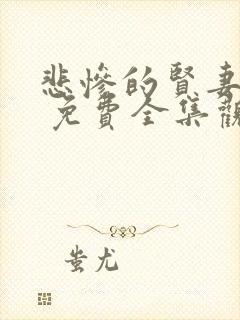 悲慘的賢妻
免費全集觀
蚩尤